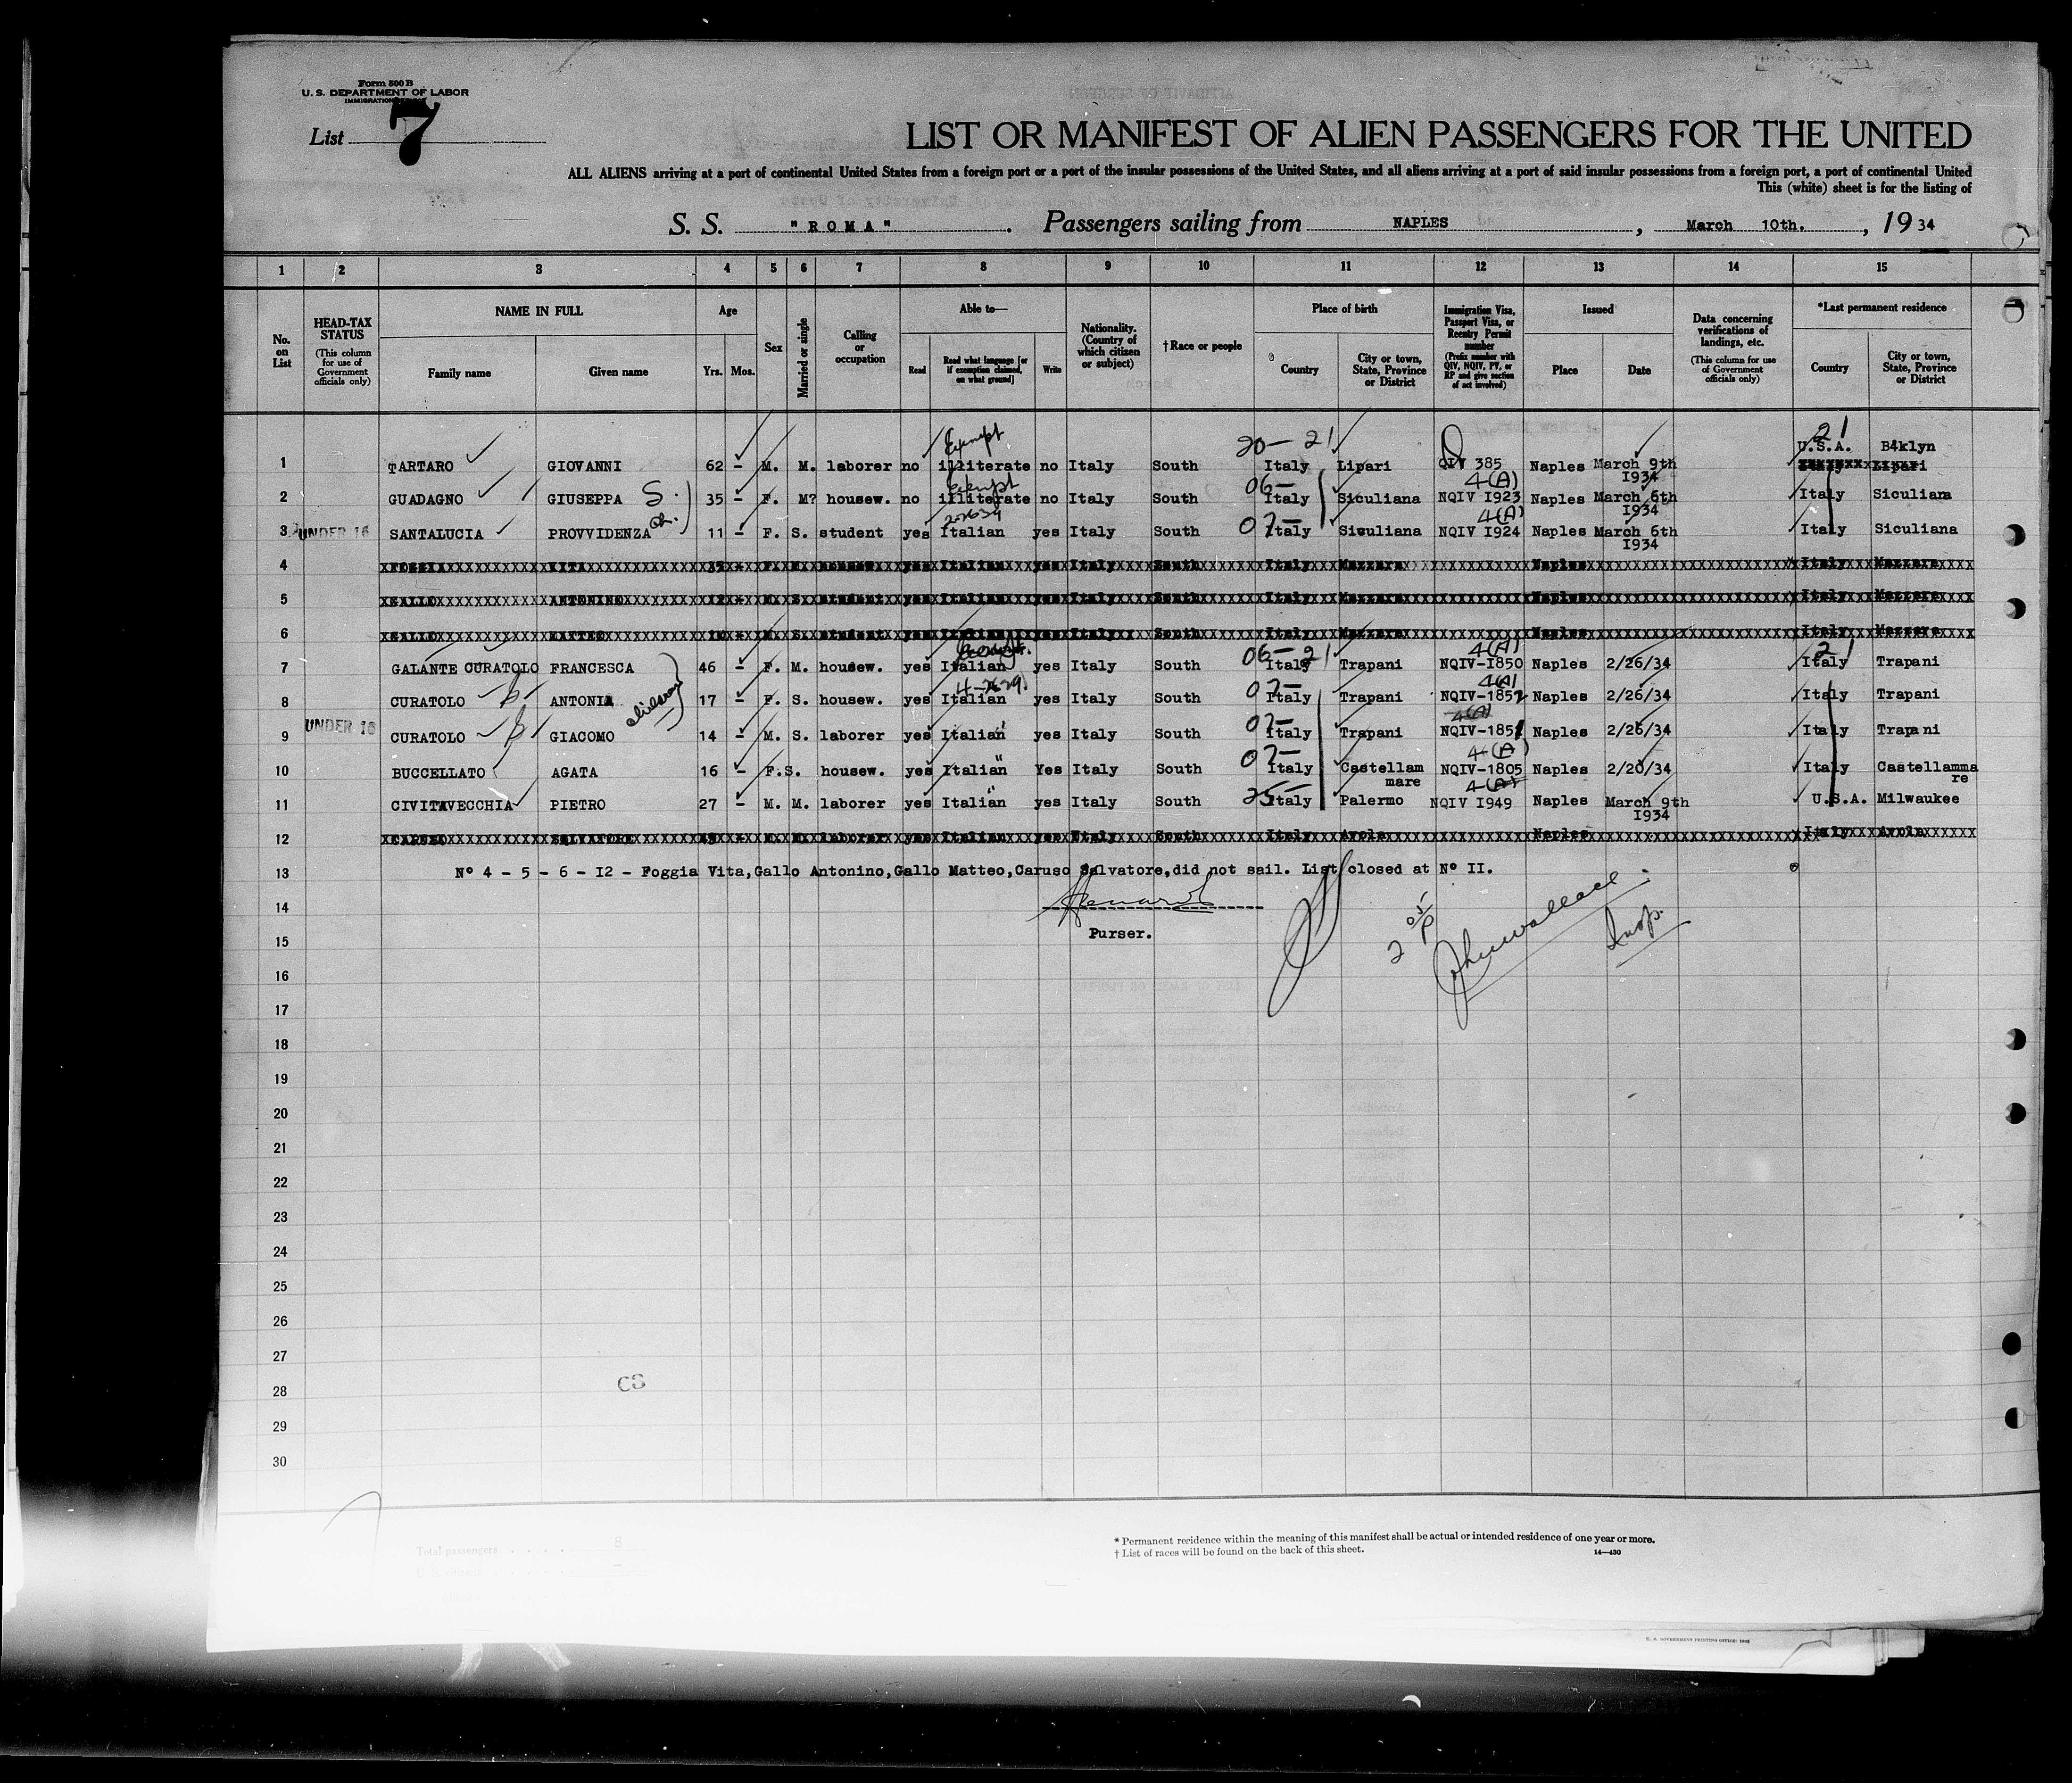 Form 500 B
U. S. DEPARTMENT OF LABOR
List 7
LIST OR MANIFEST OF ALIEN PASSENGERS FOR THE UNITED
ALL ALIENS arriving at a port of continental United States from a foreign port or a port of the insular possessions of the United States, and all aliens arriving at a port of said insular possessions from a foreign port, a port of continental United
This (white) sheet is for the listing of
S. S. "ROMA". Passengers sailing from NAPLES, March 10th., 1934
1 2 3 4 5 6 7 8 9 10 11 12 13 14 15
No. on List
HEAD-TAX STATUS (This column for use of Government officials only)
NAME IN FULL Family name Given name
Age Yrs. Mos.
Sex
Married or single
Calling or occupation
Able to— Read Read what language [or if exemption claimed, on what ground] Write
Nationality. (Country of which citizen or subject)
†Race or people
Place of birth Country City or town, State, Province or District
Immigration Visa, Passport Visa, or Reentry Permit number (Prefix number with QIV, NQIV, PV, or RP and give section of act involved)
Issued Place Date
Data concerning verifications of landings, etc. (This column for use of Government officials only)
*Last permanent residence Country City or town, State, Province or District
Exempt 20— 21 21
1 TARTARO GIOVANNI 62 - M. M. laborer no illiterate no Italy South Italy Lipari QIV 385 Naples March 9th 1934 U.S.A. B4klyn Lipari
Exempt 06— 4(A)
2 GUADAGNO GIUSEPPA S. 35 - F. M? housew. no illiterate no Italy South Italy Siculiana NQIV I923 Naples March 6th I934 Italy Siculiana
07— 4(A)
3 UNDER 16 SANTALUCIA PROVVIDENZA ch. 11 - F. S. student yes Italian yes Italy South Italy Siculiana NQIV I924 Naples March 6th I934 Italy Siculiana
4 FOGGIA VITA F. M. housew. yes Italian yes Italy South Italy Mazzara Naples Italy Mazzara
5 GALLO ANTONINO M. S. student yes Italian yes Italy South Italy Mazzara Naples Italy Mazzara
6 GALLO MATTEO M. S. student yes Italian yes Italy South Italy Mazzara Naples Italy Mazzara
06— 21 4(A) 21
7 GALANTE CURATOLO FRANCESCA 46 - F. M. housew. yes Italian yes Italy South Italy Trapani NQIV-I850 Naples 2/26/34 Italy Trapani
07— 4(A)
8 CURATOLO ANTONIA 17 - F. S. housew. yes Italian yes Italy South Italy Trapani NQIV-1852 Naples 2/26/34 Italy Trapani
07— 4(A)
9 UNDER 16 CURATOLO GIACOMO 14 - M. S. laborer yes Italian yes Italy South Italy Trapani NQIV-1851 Naples 2/26/34 Italy Trapani
07— " 4(A)
10 BUCCELLATO AGATA 16 - F.S. housew. yes Italian Yes Italy South Italy Castellam mare NQIV-1805 Naples 2/20/34 Italy Castellamma re
25— " 4(A)
11 CIVITAVECCHIA PIETRO 27 - M. M. laborer yes Italian yes Italy South Italy Palermo NQIV I949 Naples March 9th I934 U.S.A. Milwaukee
12 CARUSO SALVATORE M. M. laborer yes Italian yes Italy South Italy Avola Naples Italy Avola
13 Nº 4 - 5 - 6 - I2 - Foggia Vita,Gallo Antonino,Gallo Matteo,Caruso Salvatore,did not sail. List closed at Nº II.
14
15 Purser. 2 05 P John Wallace Insp.
16
17
18
19
20
21
22
23
24
25
26
27
28
29
30
* Permanent residence within the meaning of this manifest shall be actual or intended residence of one year or more.
† List of races will be found on the back of this sheet.
14—430
Total passengers 8
U. S. GOVERNMENT PRINTING OFFICE: 1932